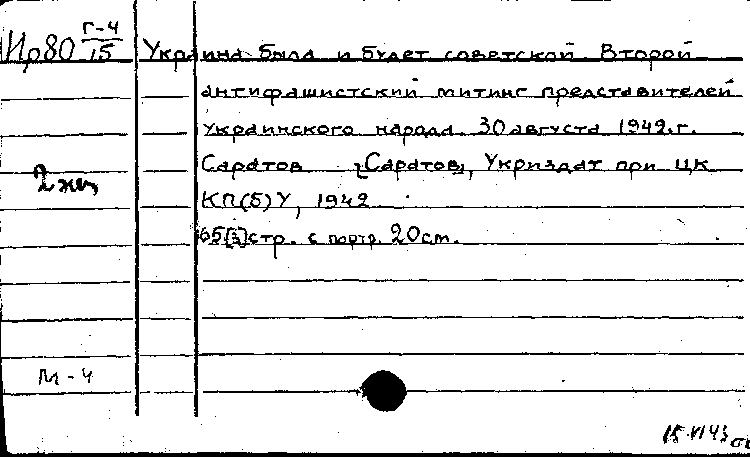 Ир80 Г-4/15 Украина была и будет советской Второй
антифашистский митинг представителей
украинского народа. 30 августа 1942.г.
Саратов [Саратов], Укриздат при ЦК
2 экз
КП(б)У, 1942
65[3]стр. с портр. 20см.
М-4
15.VI43